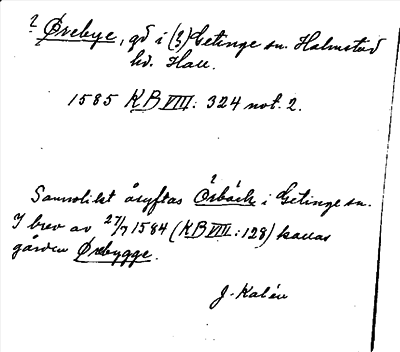 ? Örebye, gd i (?) Getinge sn. Halmstad
hd. Hall.
1585 KB VIII: 324 not. 2.
Sannolikt åsyftas Ösbäck i Getinge sn.
I brev av 27/7 1584 (KB VIII: 128) kallas
gården Örebygge.
J. Kalén